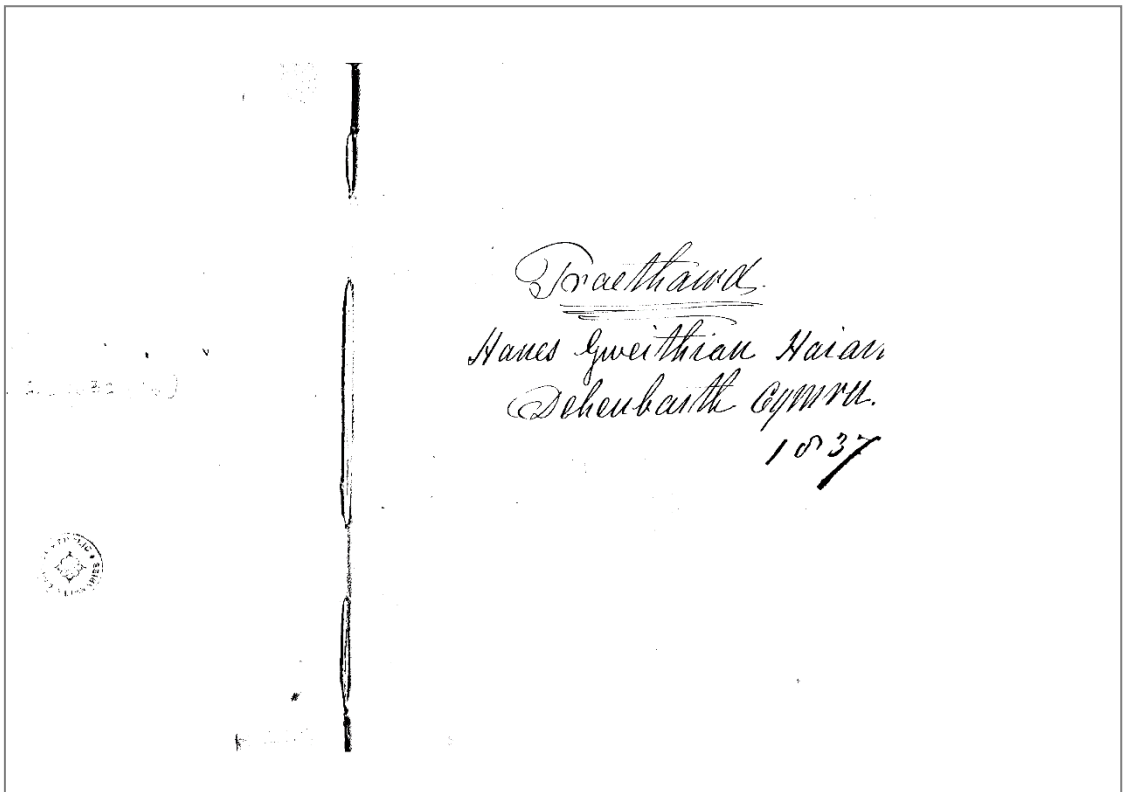 Traethawd.
Hanes Gweithian Haiarn
Deheubarth Cymru.
1837